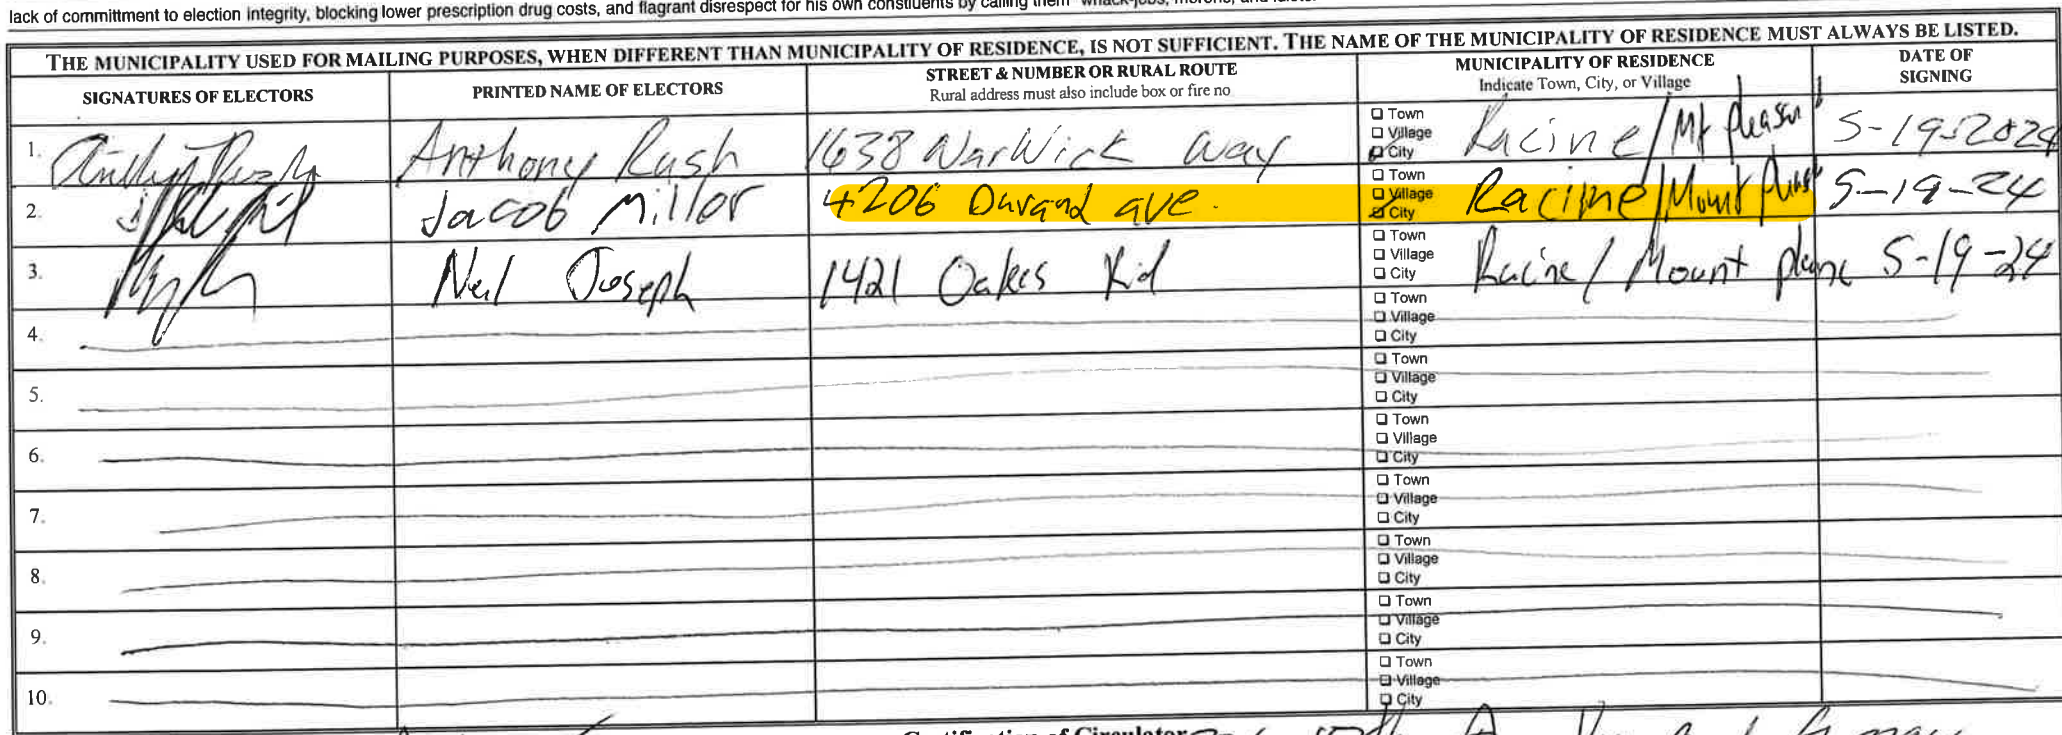 lack of committment to election integrity, blocking lower prescription drug costs, and flagrant disrespect for his own constituents by calling them
THE MUNICIPALITY USED FOR MAILING PURPOSES, WHEN DIFFERENT THAN MUNICIPALITY OF RESIDENCE, IS NOT SUFFICIENT. THE NAME OF THE MUNICIPALITY OF RESIDENCE MUST ALWAYS BE LISTED.
SIGNATURES OF ELECTORS
PRINTED NAME OF ELECTORS
STREET & NUMBER OR RURAL ROUTE
Rural address must also include box or fire no
MUNICIPALITY OF RESIDENCE
Indicate Town, City, or Village
DATE OF
SIGNING
1. Anthony Rush 1638 Warwick Way
Town
Village
City
Racine/Mt pleasant 5-19-2024
2. Jacob Miller 4206 Durand ave.
Town
Village
City
Racine/Mount 5-19-24
3. Neil Joseph 1421 Oakes Rd
Town
Village
City
Racine/Mount 5-19-24
4.
Town
Village
City
5.
Town
Village
City
6.
Town
Village
City
7.
Town
Village
City
8.
Town
Village
City
9.
Town
Village
City
10.
Town
Village
City
Certification of Circulator